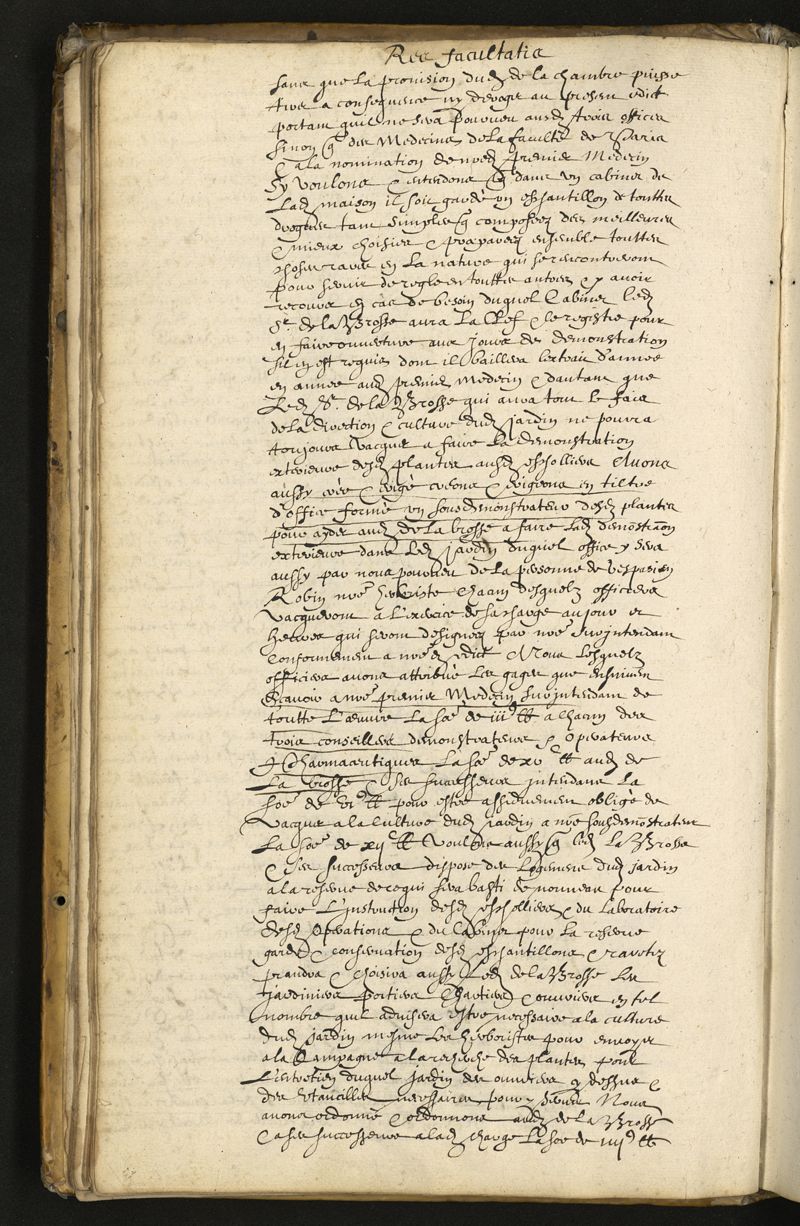 Res facultatis
sans que la provision dud de la chambre puisse
tirer a consequence ny deroger au present edict
portant quil ne sera pourveu ausd trois offices
sinon q des Medecins de la faculté de Paris
& a la nomination de nred premier Medecin
Sy voulons & entendons q dans un cabinet de
lad maison il soit gardé un eschantillon de touttes
drogues tant simples q composées des meilleures
& mieux choisies & praparees ensemble touttes
choses rares en la nature qui se rencontreront
pour servir de regle en touttes autres & y avoir
recours en cas de besoin duquel Cabinet led
Sr. de la Brosse aura la Clef & le registre pour
en faire ouverture aux jours de demonstration
sil en est requis dont il baillera lextrait d'annee
en annee aud premier Medecin & dautant que
Led Sr. de la Brosse qui aura tout le faix
de la direction & culture dud jardin ne pourra
toujours vacquer a faire la demonstration
exterieure desd plantes ausd escholliers Avons
aussy creé & erigé creons & erigeons en tiltre
d'office formé un sousdemonstrateur desd plantes
pour ayder aud de la brosse a faire lad demoñstraon
exterieure dans led jardin duquel office y sera
aussy par nous pourveu de la personne de Vespasien
Robin nre herboriste chacun desquelz officiers
vacqueront a l'exercice de sa charge au jour et
heures qui seront designez par nre surjntendant
conformement a nred edict A tous lesquelz
officiers avons attribué les gages que ensuivent
Scavoir a nre premier Medecin surjntendant de
toutte l'œuvre la soe de iijm tt a chacun des
trois conseillers demonstrateurs & operateurs
pharmaceutiques la soe de xvc tt aud de
La brosse & ses successeurs jntendans la
soe de vjm tt pour estre assiduement obligé de
vacquer a la culture dud jardin a nre sousdemonstrateur
la soe de xijc tt voulons aussy q led la Brosse
& ses successeurs dispose des logemens dud jardin
a la reserve de ce qui sera basti de nouveau pour
faire l'instruction desd escholliers & du laboratoire
desd operations & du cabinet pour la reserve
garde & conservation desd eschantillons & raretez
prandra & choisira aussy led de la Brosse les
jardiniers portiers & ouvriers en tel
nombre quil advisera estre necessaire a la culture
dud jardin mesme les herboristes pour envoyer
a la Campagne a la recherche des plantes pour
l'entretien duquel jardin des ouvriers cy dessus &
des ustancilles necessaires pour y servir Nous
avons ordonné & ordonnons aud de la Brosse
& a ses successeurs a lad charge la soe de iiijm tt